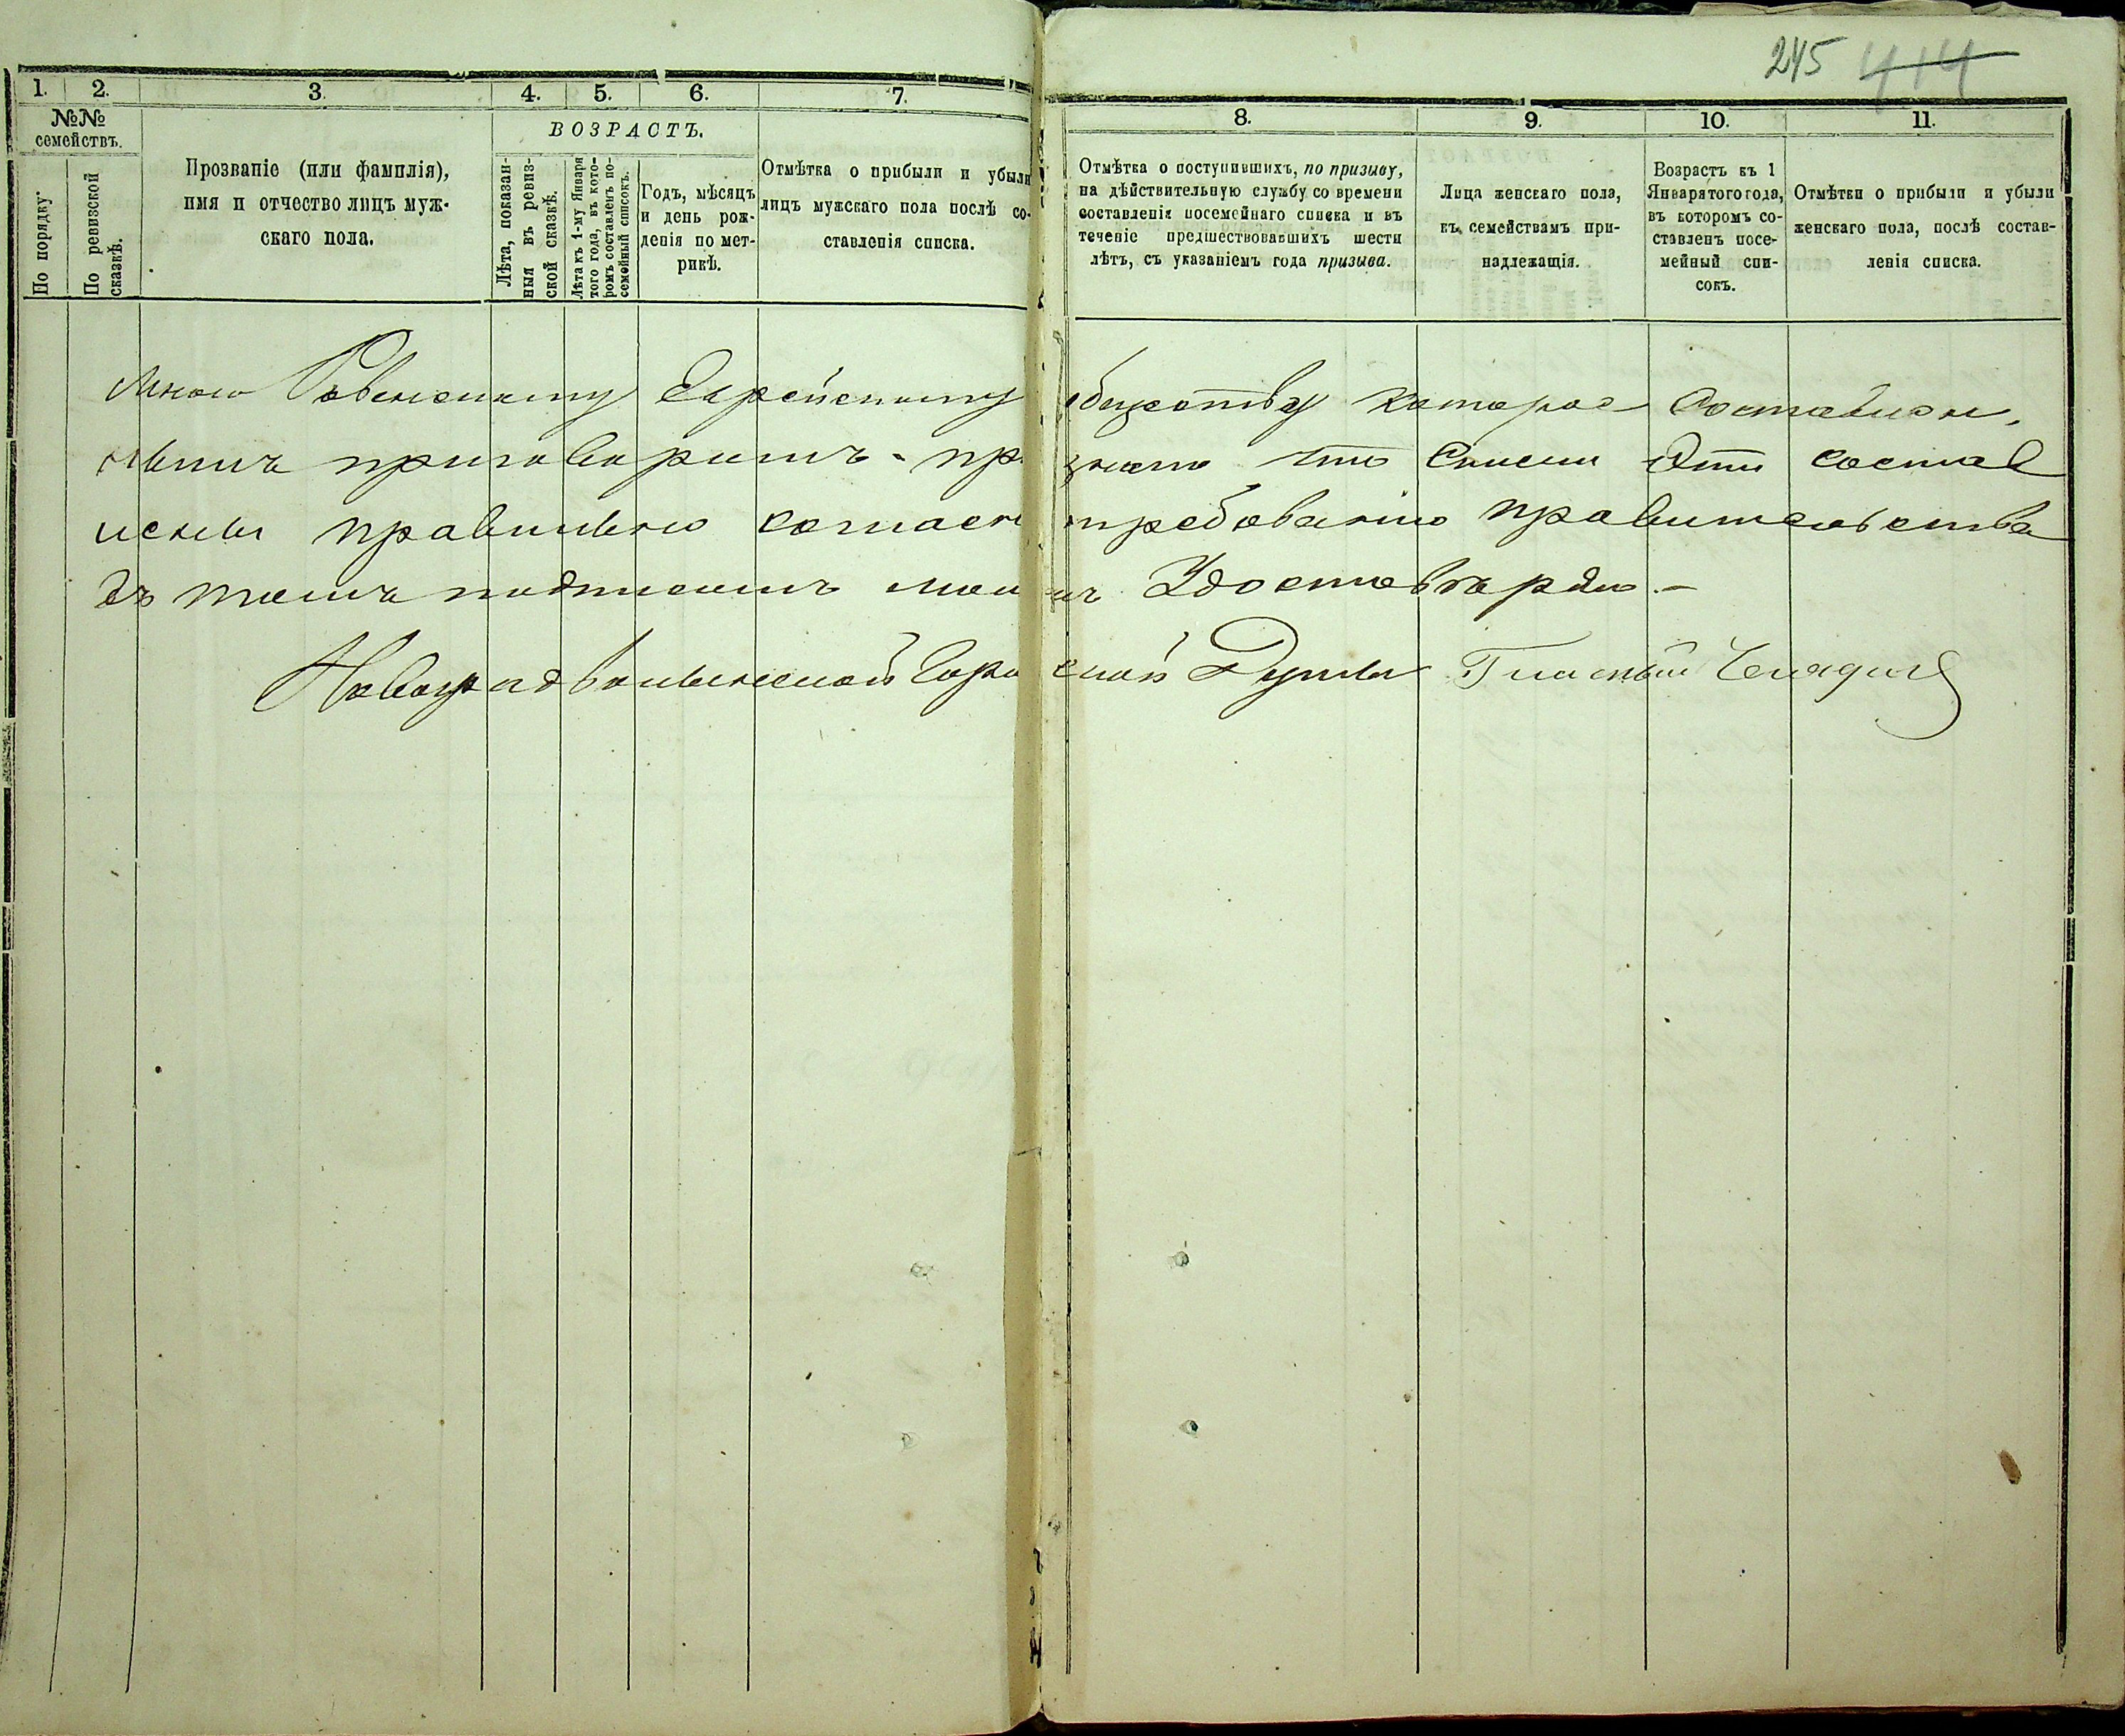 245 414
1. 2. 3. 4. 5. 6. 7.
№№ семействъ.
По порядку.
По ревизской сказкѣ.
Прозваніе (или фамилія),
имя и отчество лицъ муж-
скаго пола.
ВОЗРАСТЪ.
Лѣта, показан-
ныя въ ревиз-
ской сказкѣ.
Лѣта къ 1-му Января
того года, въ кото-
ромъ составленъ по-
семейный списокъ.
Годъ, мѣсяцъ
и день рож-
денія по мет-
рикѣ.
Отмѣтка о прибыли и убыли
лицъ мужскаго пола послѣ со-
ставленія списка.
8. 9. 10. 11.
Отмѣтка о поступившихъ, по призыву,
на дѣйствительную службу со времени
составленія посемейнаго списка и въ
теченіе предшествовавшихъ шести
лѣтъ, съ указаніемъ года призыва.
Лица женскаго пола,
къ семействамъ при-
надлежащія.
Возрастъ къ 1
Января того года,
въ которомъ со-
ставленъ посе-
мейный спи-
сокъ.
Отмѣтки о прибыли и убыли
женскаго пола, послѣ состав-
ленія списка.
мною Ровенскому Еврейскому обществу которое составлен,
нымъ приговоромъ пр знало что Списки Эти состав
лены правильно согласно требованію правительства
въ томъ подписомъ моимъ Удостовѣряю.-
Новоградволынской Городской Думы Гласный